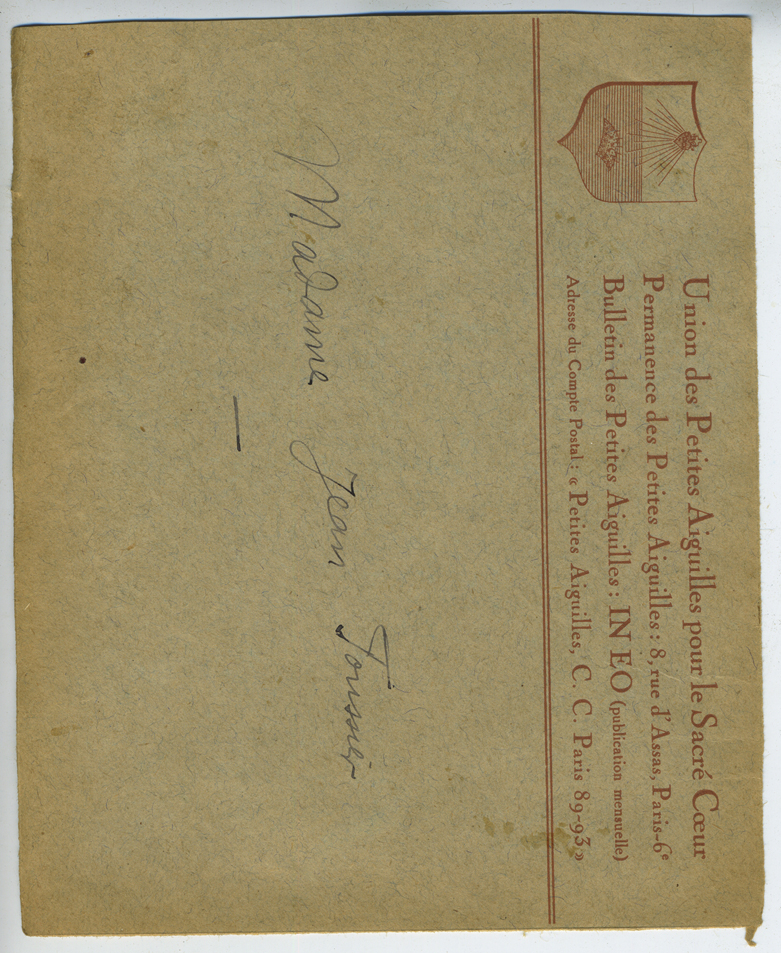 Union des Petites Aiguilles pour le Sacré Cœur
Permanence des Petites Aiguilles : 8, rue d'Assas, Paris-6e
Bulletin des Petites Aiguilles : IN EO (publication mensuelle)
Adresse du Compte Postal : « Petites Aiguilles, C. C. Paris 89-93 »
Madame Jean Toussier